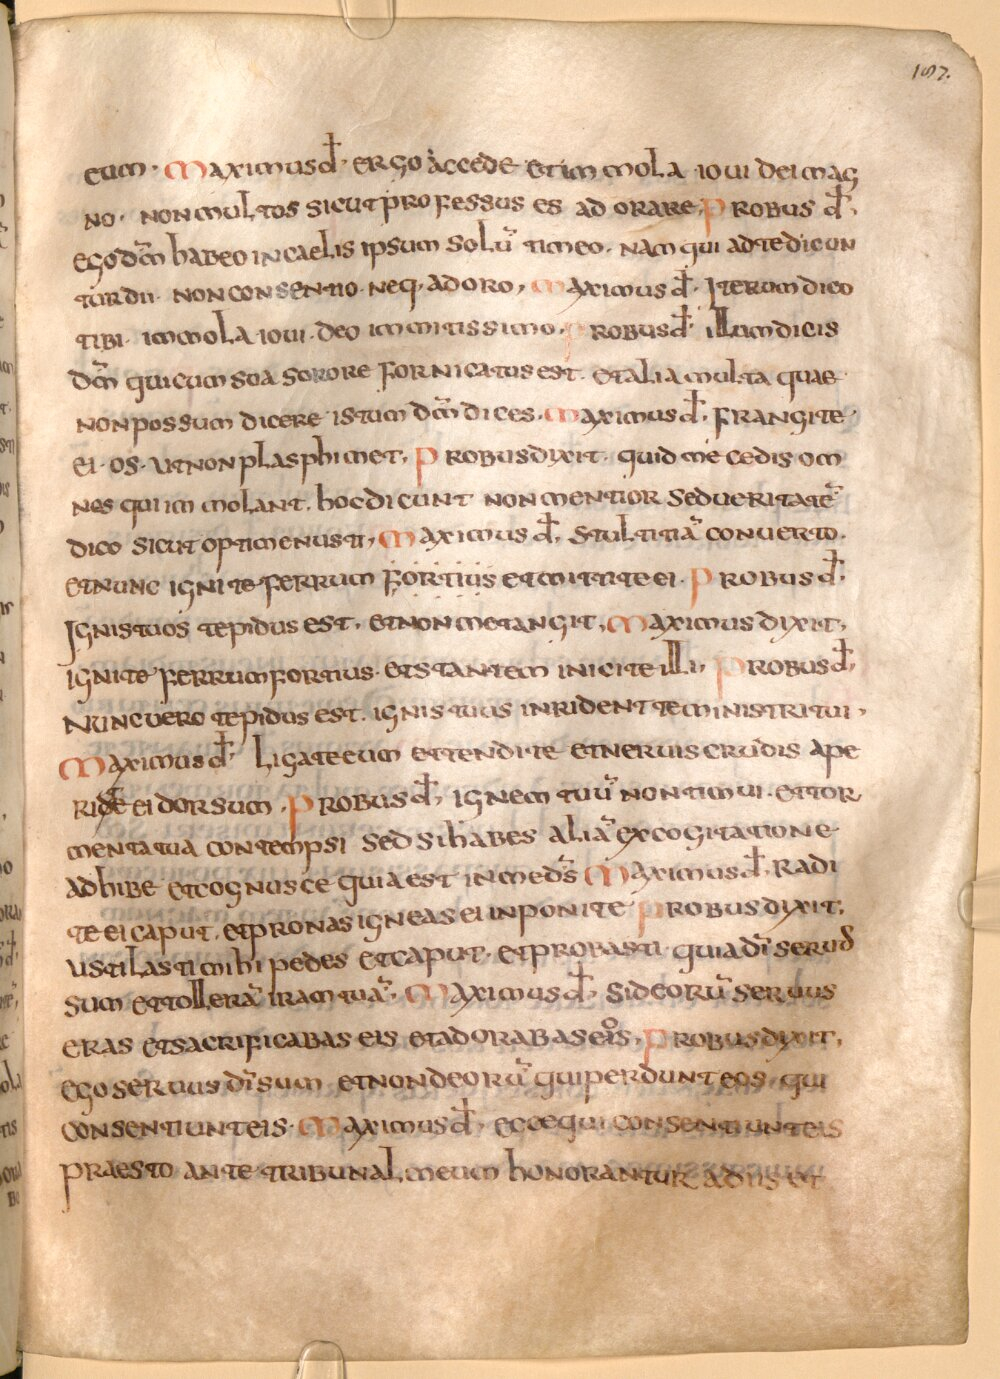 197.
eum · Maximus đ · ergo accede et immola ioui dei mag
no · non multos sicut professus es ad orare · Probus đ ·
ego dm̄ habeo in caelis ipsum solū timeo · nam qui ad te dicun
tur dii · non consentio · neq · adoro, Maximus đ · Iterum dico
tibi · immola ioui · deo immitissimo · Probus đ · illum dicis
dm̄ qui cum sua sorore fornicatus est · et alia multa quae
non possum dicere istum dm̄ dices · Maximus đ · frangite
ei · os · ut non plasphimet, Probus dixit · quid me cedis om
nes qui immolant · hoc dicunt non mentior sed ueritatē
dico sicut optimenus ti, Maximus đ, stultitiā conuerto ·
et nunc ignite ferrum fortius et mittite ei · Probus đ ·
Ignis tuos tepidus est, et non me tangit, Maximus dixit,
ignite ferrum fortius · et stantem inicite illi, Probus đ,
Nunc uero tepidus est · ignis tuus inrident te ministri tui,
Maximus đ · Ligate eum et tendite et neruis crudis ape
rite ei dorsum · Probus đ, ignem tuū non timui · et tor
menta tua contempsi sed si habes aliā excogitatione
adhibe et cognusce quia est in me ds̄ Maximus đ, radi
te ei caput · et pronas igneas ei inponite Probus dixit,
ustilasti mihi pedes et caput · et probasti · quia dī seruus
sum et tollerā iram tuā, Maximus đ · si deorū seruus
eras et sacrificabas eis et adorabas eos, Probus dixit,
ego seruus dī sum et non deorū qui perdunt eos · qui
consentiunt eis · Maximus đ, ecce qui consentiunt eis
praesto ante tribunal meum honorantur a diis et